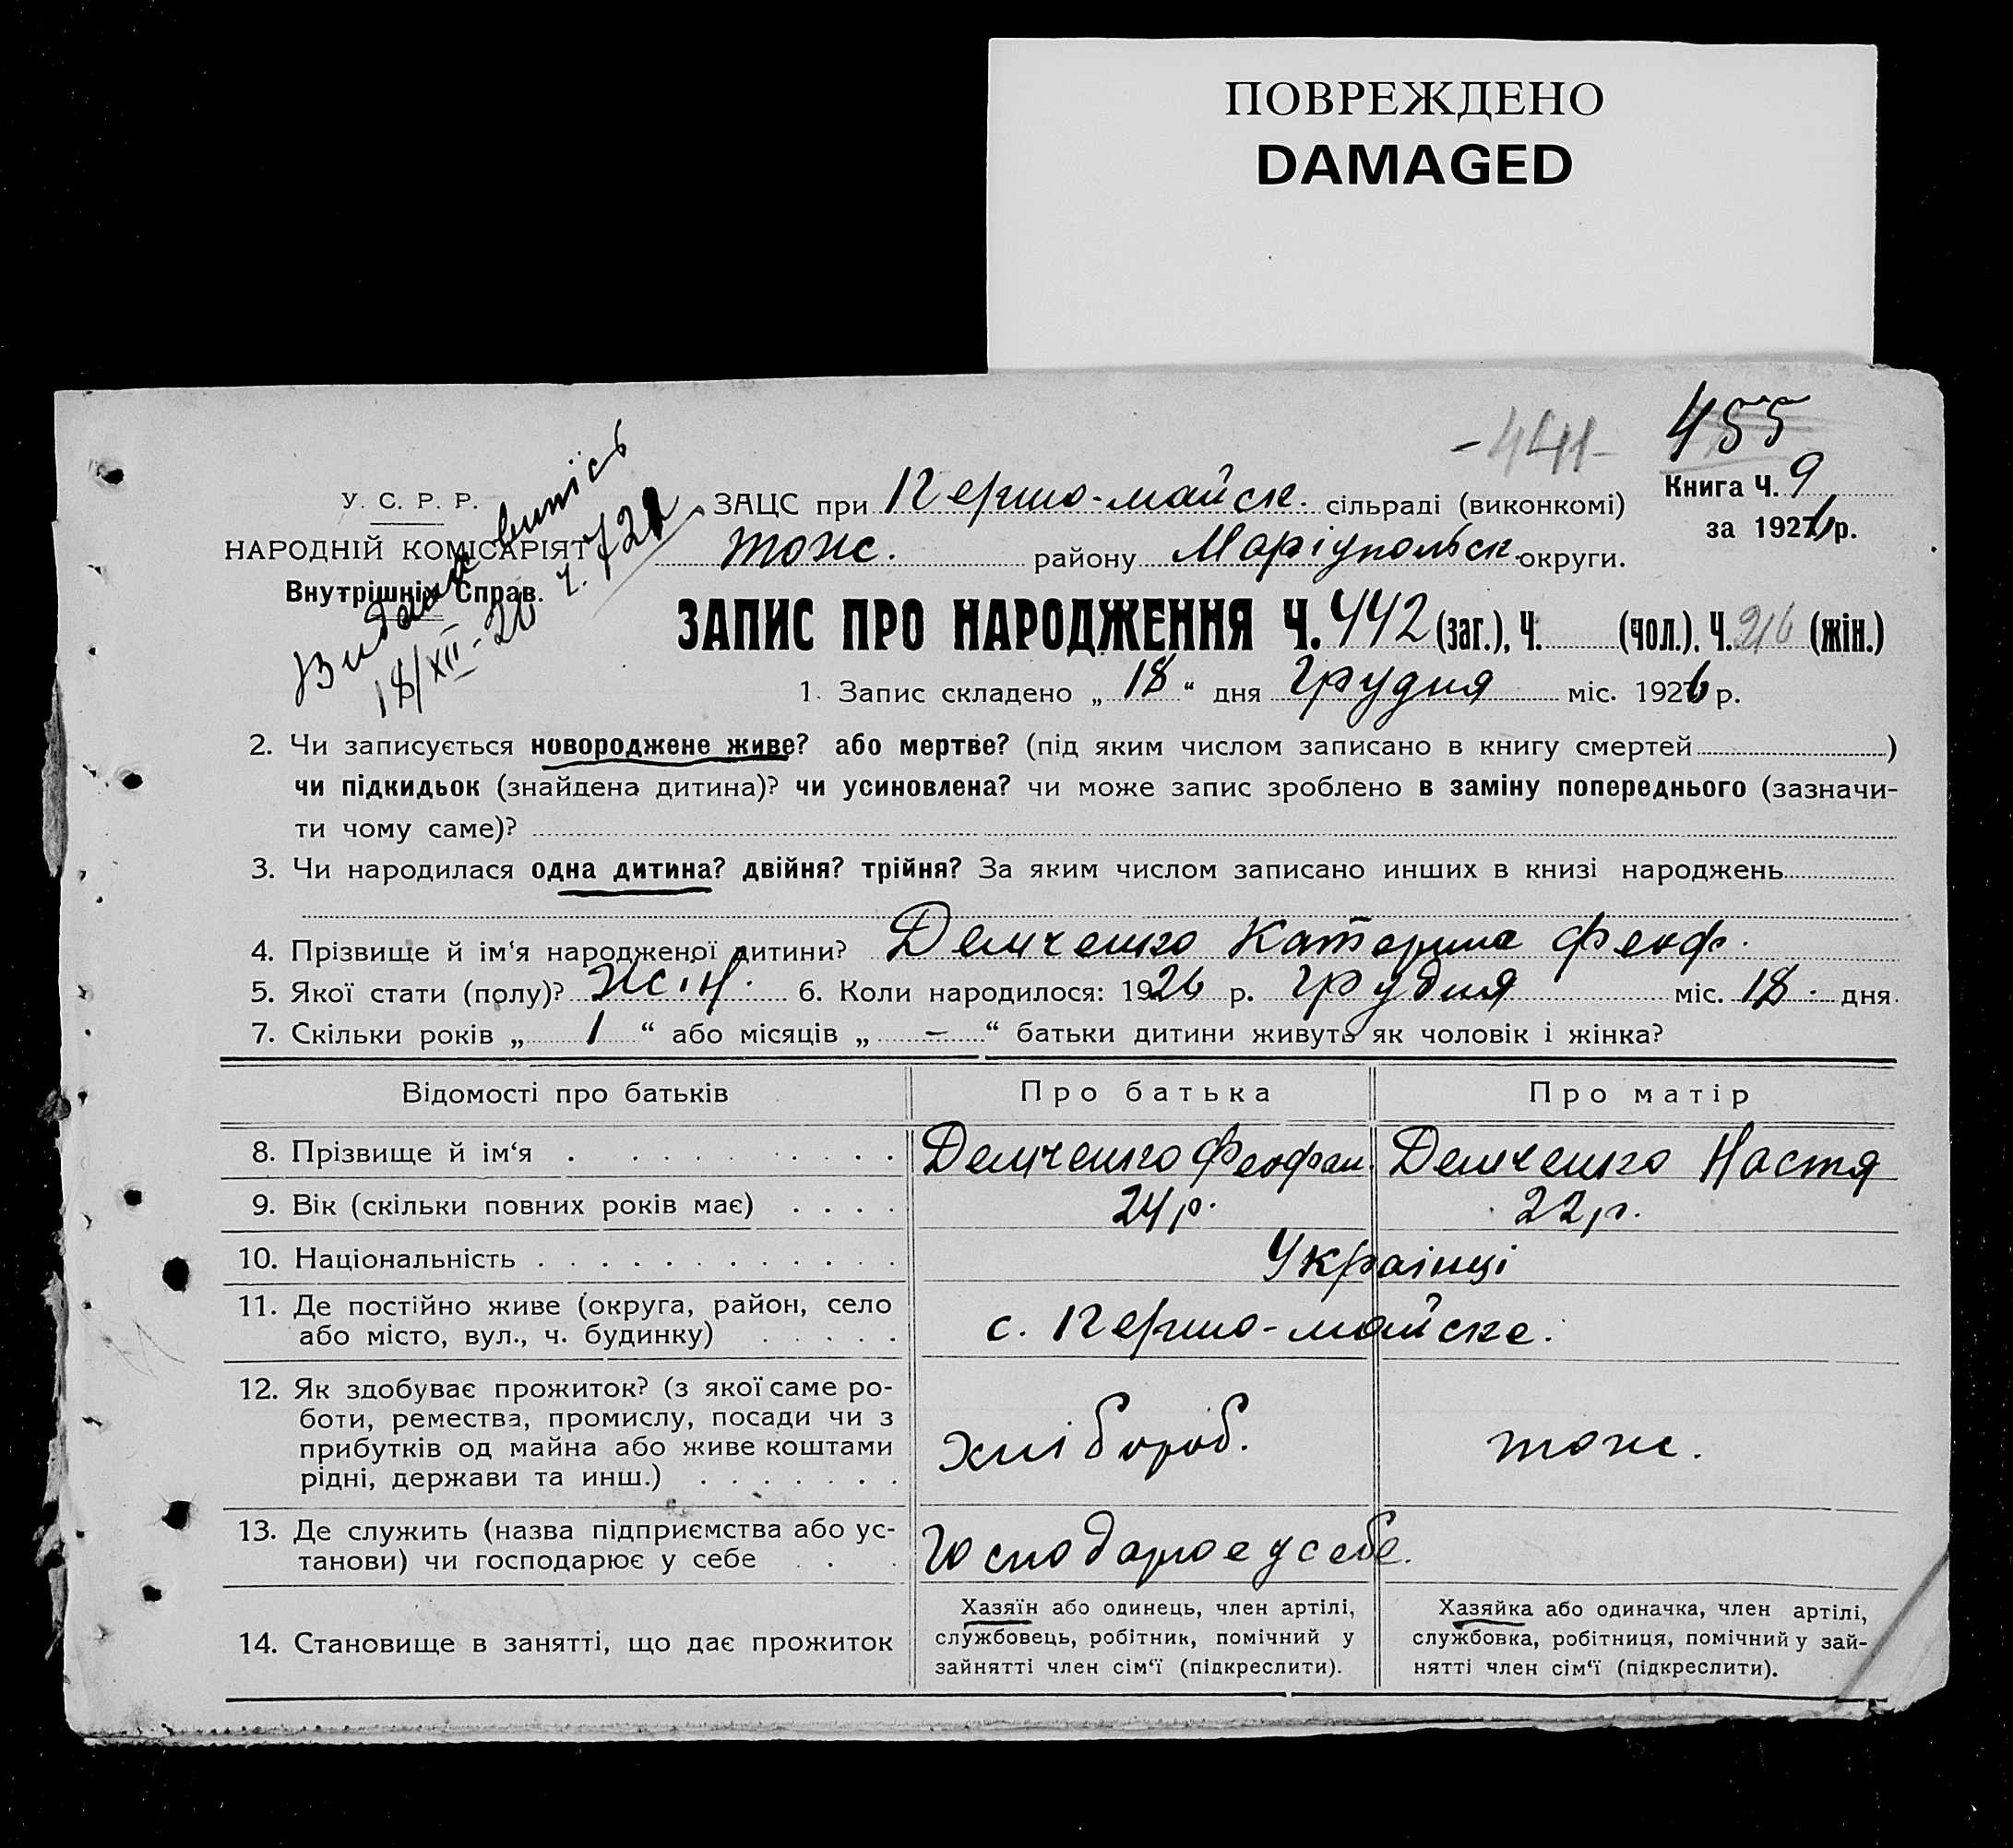 ПОВРЕЖДЕНО
DAMAGED
-441-
455
Книга Ч. 9
за 1926 р.
У. С. Р. Р.
НАРОДНІЙ КОМІСАРІЯТ
Внутрішніх Справ.
Видана випісь
18/XII-26 ч. 721
ЗАЦС при Першо-майск. сільраді (виконкомі)
тож. району Маріупольськ. округи.
ЗАПИС ПРО НАРОДЖЕННЯ Ч. 442 (заг.), Ч. (чол.), Ч. 216 (жін.)
1. Запис складено „ 18 “ дня Грудня міс. 1926 р.
2. Чи записується новороджене живе? або мертве? (під яким числом записано в книгу смертей )
чи підкидьок (знайдена дитина)? чи усиновлена? чи може запис зроблено в заміну попереднього (зазначи-
ти чому саме)?
3. Чи народилася одна дитина? двійня? трійня? За яким числом записано инших в книзі народжень
4. Прізвище й ім‘я народженої дитини? Демченко Катерина Феоф.
5. Якої стати (полу)? Жін. 6. Коли народилося: 1926 р. Грудня міс. 18. дня.
7. Скільки років „ 1 “ або місяців „ – “ батьки дитини живуть як чоловік і жінка?
Відомості про батьків Про батька Про матір
8. Прізвище й ім‘я Демченко Феофан. Демченко Настя
9. Вік (скільки повних років має) 24 р. 22 р.
10. Національність Українці
11. Де постійно живе (округа, район, село
або місто, вул., ч. будинку) с. Першо-майське.
12. Як здобуває прожиток? (з якої саме ро-
боти, ремества, промислу, посади чи з
прибутків од майна або живе коштами
рідні, держави та инш.) хлібороб. тож.
13. Де служить (назва підприємства або ус-
танови) чи господарює у себе Господарює у себе.
14. Становище в занятті, що дає прожиток
Хазяїн або одинець, член артілі,
службовець, робітник, помічний у
зайнятті член сім‘ї (підкреслити).
Хазяйка або одиначка, член артілі,
службовка, робітниця, помічний у зай-
нятті член сім‘ї (підкреслити).